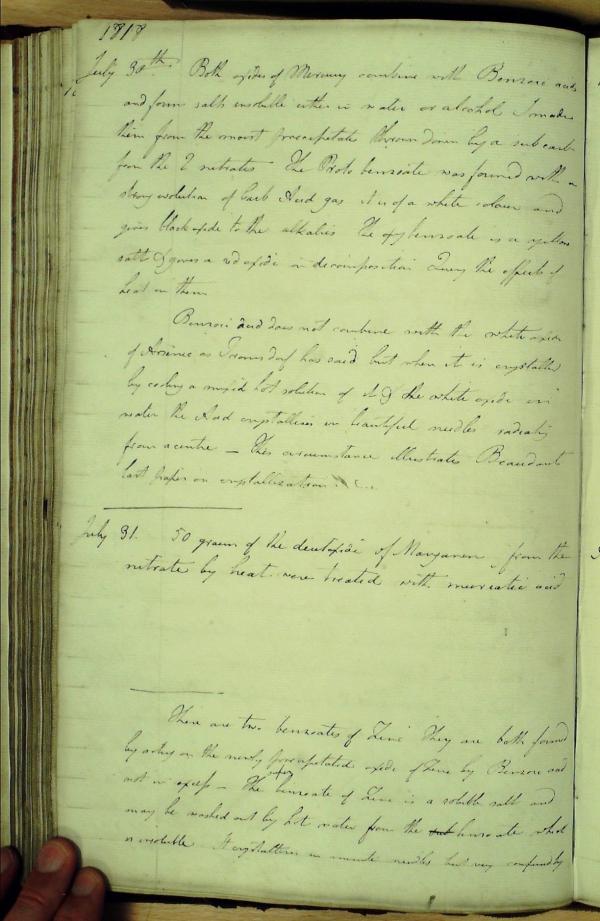 1818
July 30th Both oxides of Mercury combine with Benzoic acid
and form salts insoluble either in water or alcohol I made
them from the moist precipitates thrown down by a sub carb
from the 2 nitrates The Proto benzoate was formed with a
strong evolution of Carb Acid gas it is of a white colour and
gives black oxide to the alkalies The oxy benzoate is a yellow
salt & gives a red oxide in decomposition Query the effects of
heat on them
Benzoic acid does not combine with the white oxide
of Arsenic as has said but when it is crystallised
by cooling a mixed hot solution of it & the white oxide in
water the Acid crystallises in beautiful needles radiating
from a centre – This circumstance illustrates Beaudant's
last paper on crystallization
July 31. 50 grains of the deutoxide of Manganese from the
nitrate by heat were treated with muriatic acid
There are two benzoates of Zinc They are both formed
by acting on the newly precipitated oxide of Zinc by Benzoic acid
not in excess – The oxy benzoate of Zinc is a soluble salt and
may be washed out by hot water from the benzoate which
is insoluble It crystallises in minute needles but very confusedly